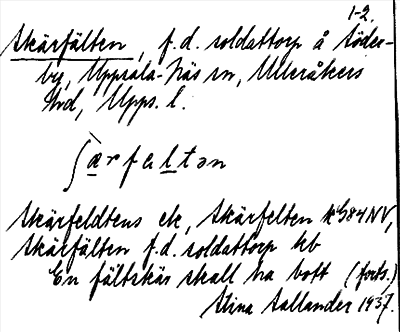 1-2.
Skärfälten, f.d. soldattorp å Söder-
by, Uppsala-Näs sn, Ulleråkers
hd, Upps. l.
ʃ`ärfältən
Skärfeldtens ek, Skärfelten k G84NV,
Skärfälten f.d. soldattorp hb
En fältskär skall ha bott (forts.)
Stina Sallander 1937.